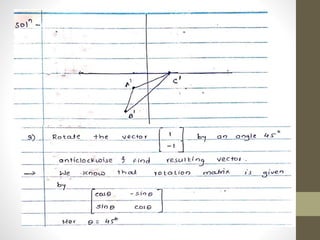 Solⁿ-
A'
C'
B'
3) Rotate the vector [ 1 -1 ] by an angle 45°
anticlockwise & find resulting vector.
→ We know that rotation matrix is given
by
[ cosθ -sinθ
sinθ cosθ ]
Her θ = 45°